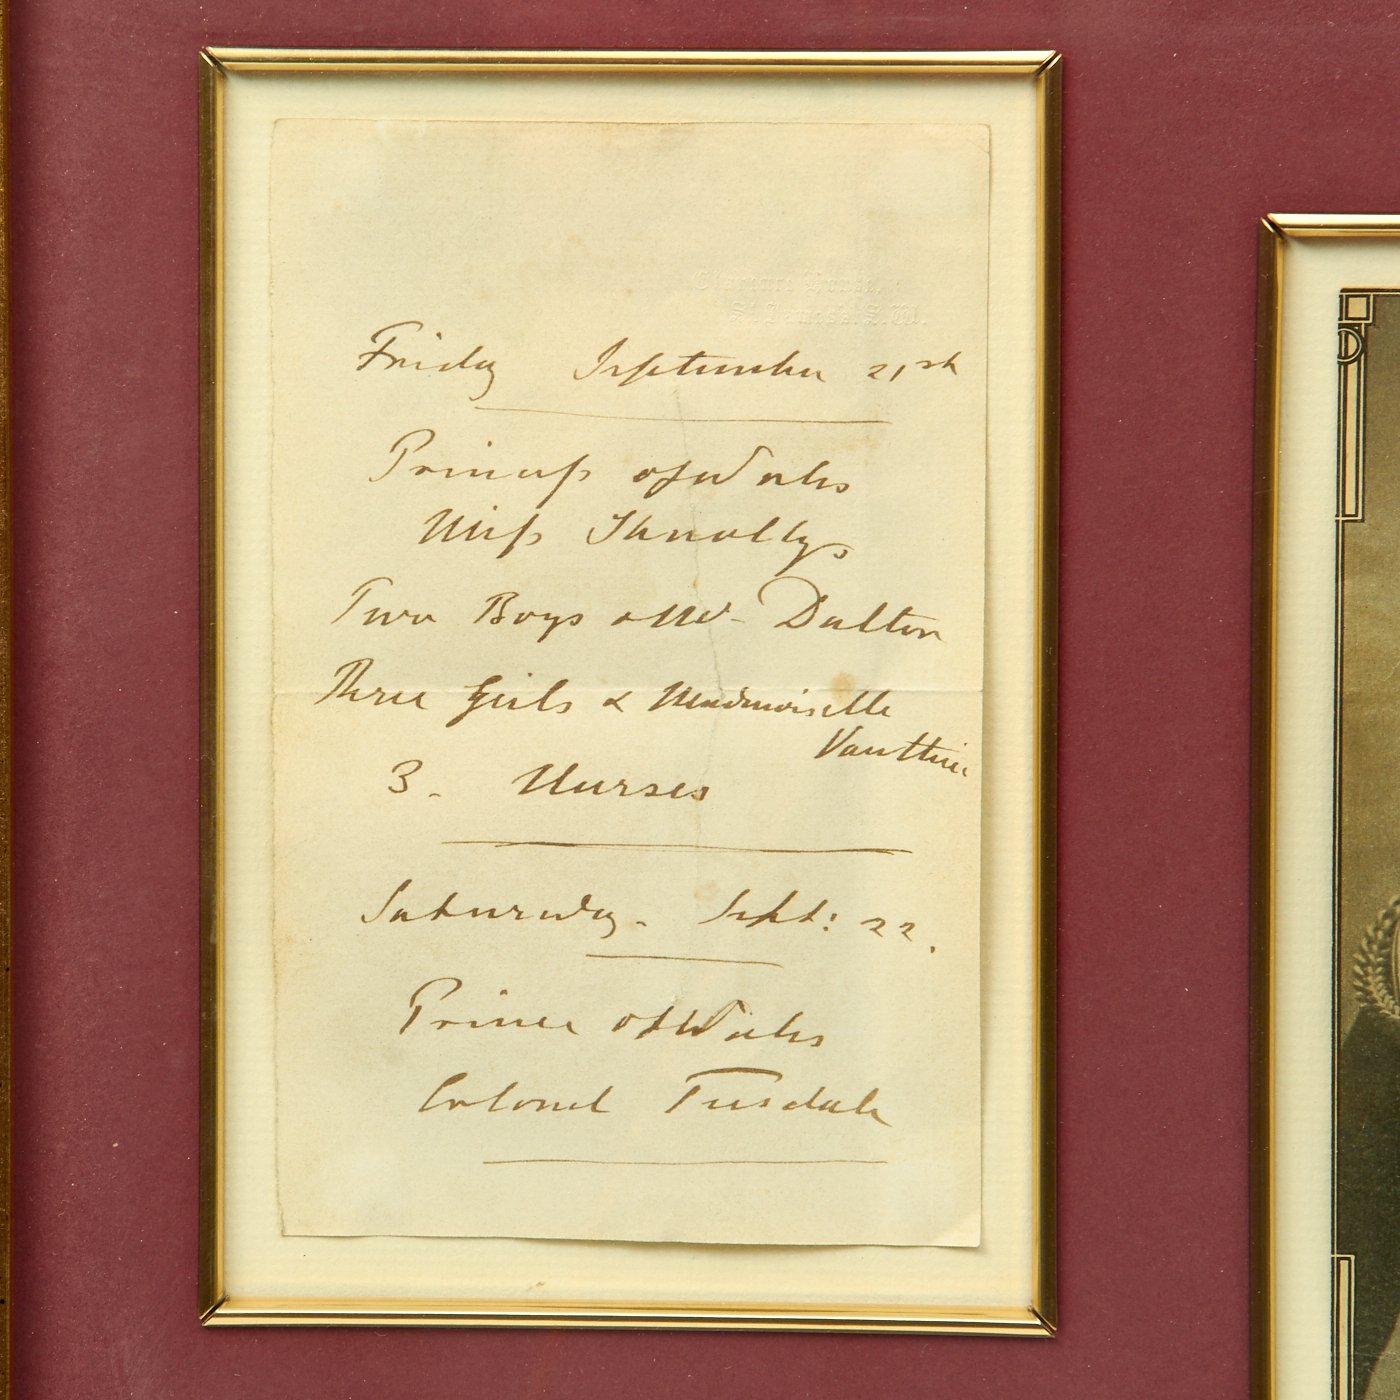 Clarence House,
St. James's. S.W.
Friday September 21st
Princess of Wales
Miss Knollys
Two Boys & Mr. Dalton
Three Girls & Mademoiselle
Vauthier
3. Nurses
Saturday. Sept: 22.
Prince of Wales
Colonel Teesdale